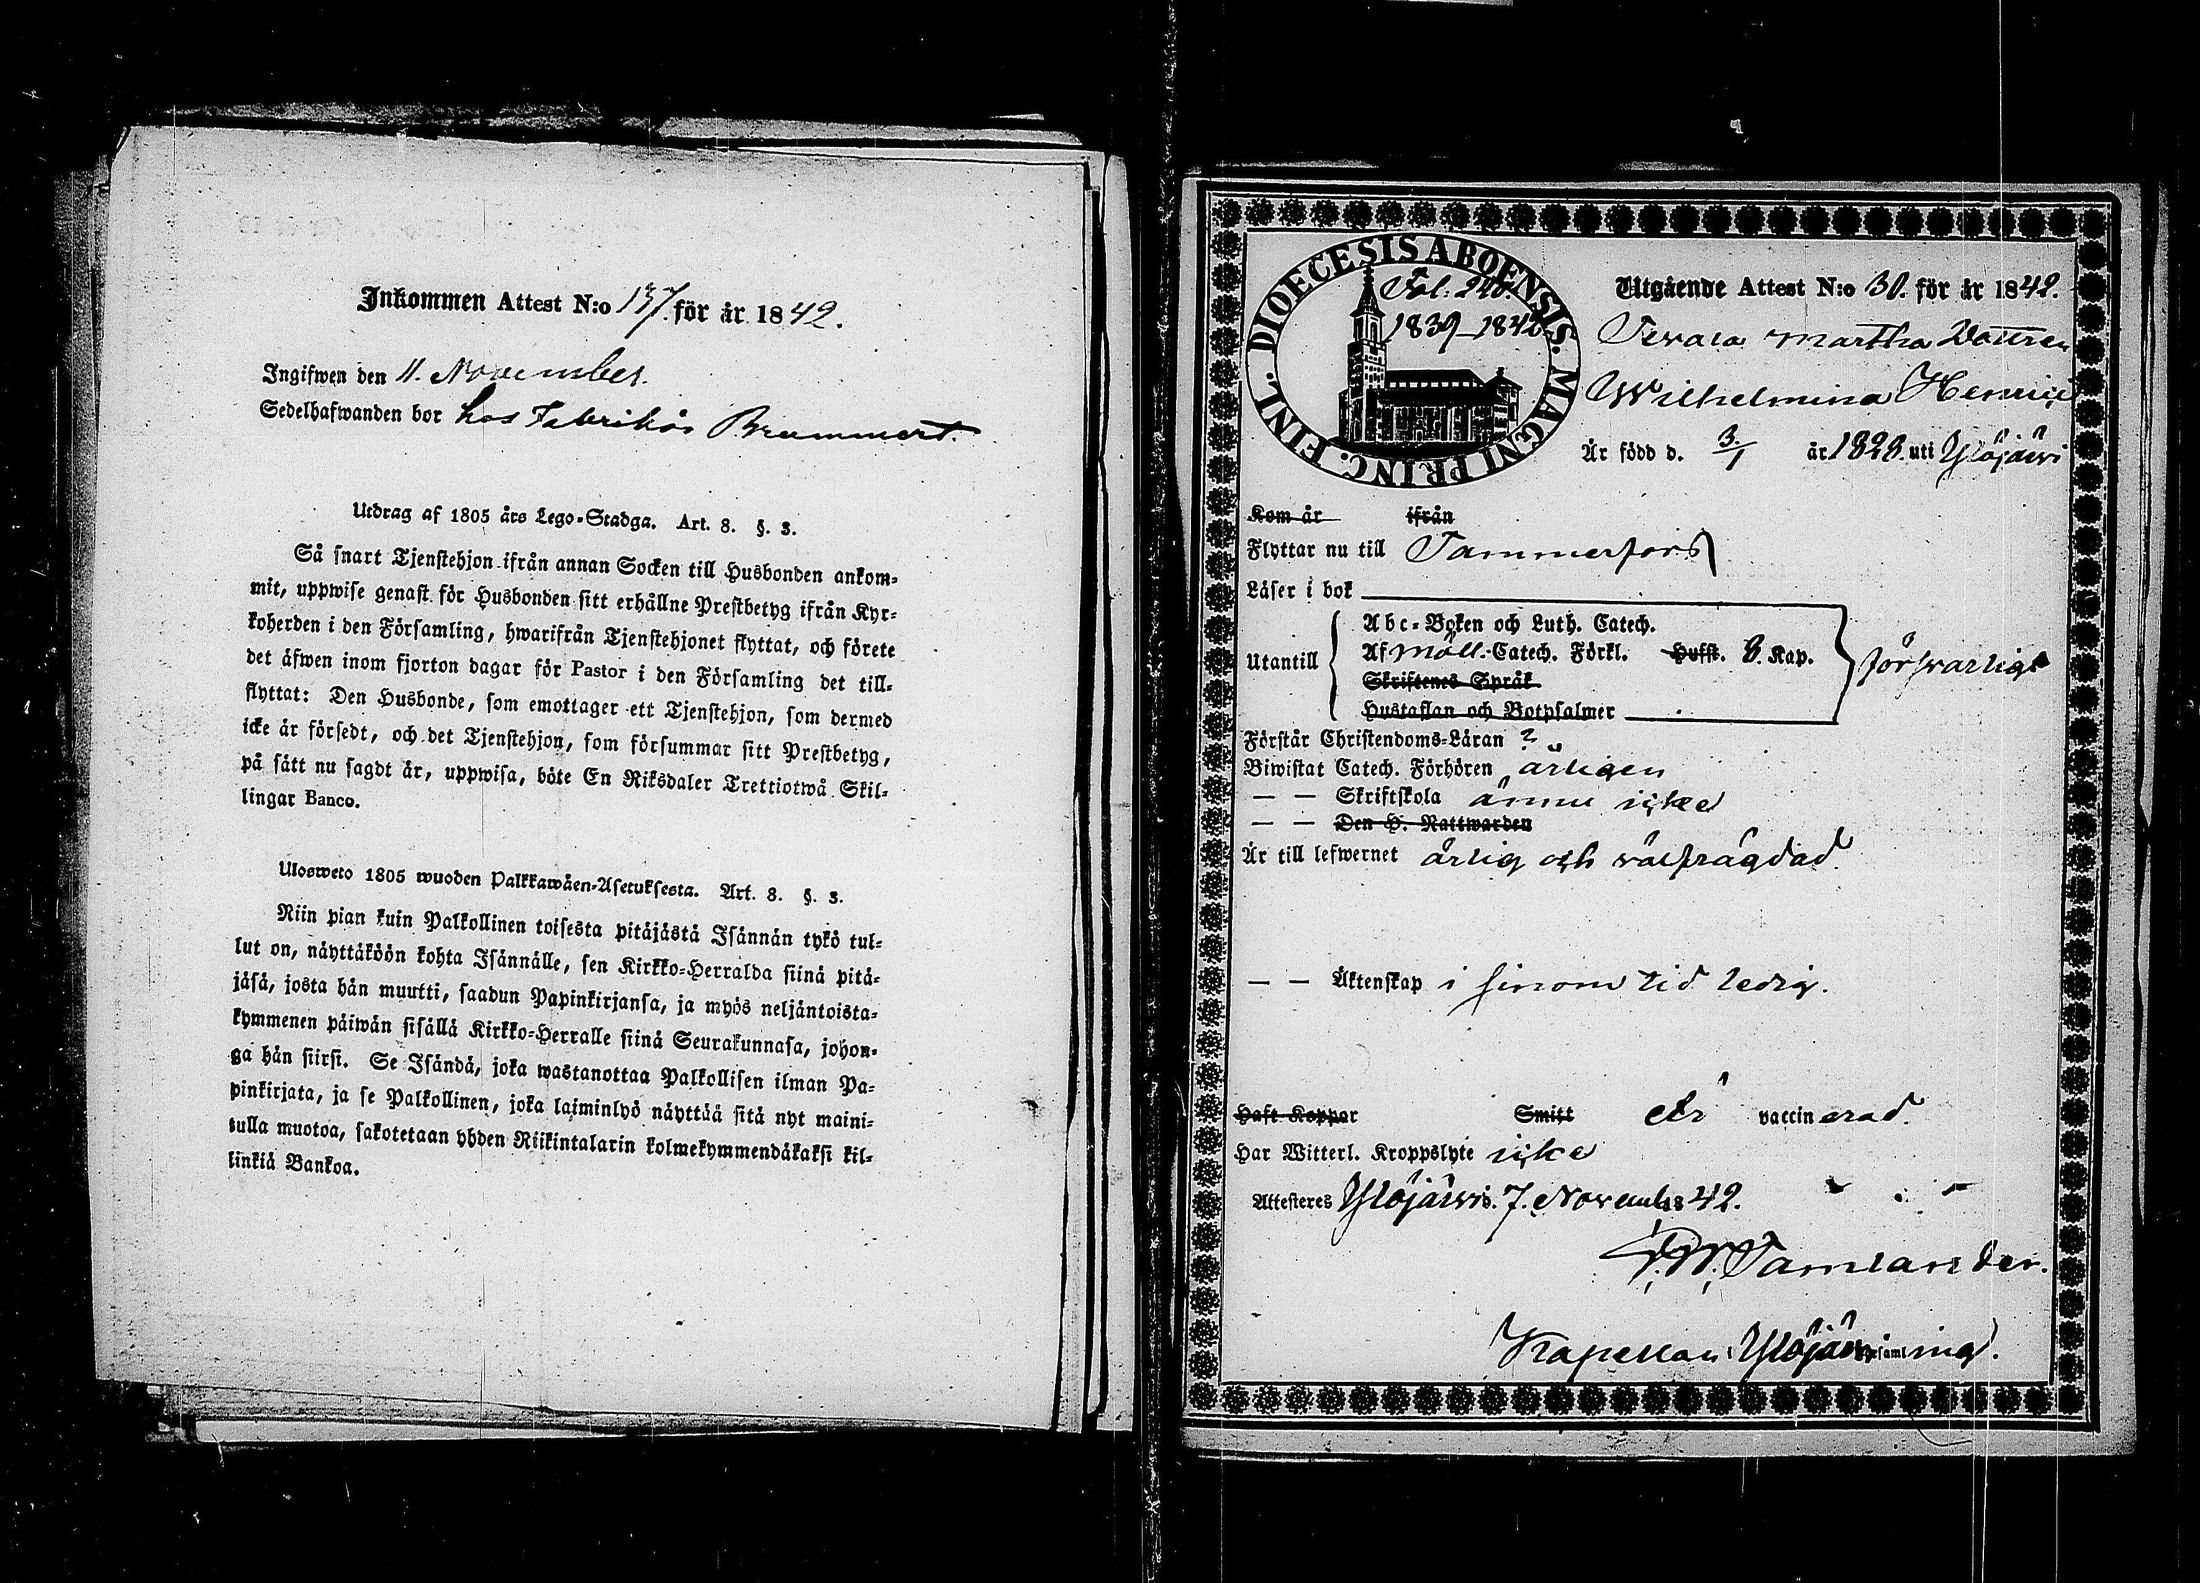 Inkommen Attest N:o 137. för år 1842.
Ingifwen den 11. November.
Sedelhafwanden bor hos Fabrikör Brummert.
Utdrag af 1805 års Lego-Stadga. Art. 8. §. 3.
Så snart Tjenstehjon ifrån annan Socken till Husbonden ankom-
mit, uppwise genast för Husbonden sitt erhållne Prestbetyg ifrån Kyr-
koherden i den Församling, hwarifrån Tjenstehjonet flyttat, och förete
det äfwen inom fjorton dagar för Pastor i den Församling det till-
flyttat: Den Husbonde, som emottager ett Tjenstehjon, som dermed
icke är försedt, och det Tjenstehjon, som försummar sitt Prestbetyg,
på sätt nu sagdt är, uppwisa, böte En Riksdaler Trettiotwå Skil-
lingar Banco.
Ulosweto 1805 wuoden Palkkawäen-Asetuksesta. Art. 8. §. 3.
Niin pian kuin Palkollinen toisesta pitäjästä Isännän tykö tul-
lut on, näyttäköön kohta Isännälle, sen Kirkko-Herralda siinä pitä-
jäsä, josta hän muutti, saadun Papinkirjansa, ja myös neljäntoista-
kymmenen päiwän sisällä Kirkko-Herralle siinä Seurakunnasa, johon-
ga hän siirsi. Se Isändä, joka wastanottaa Palkollisen ilman Pa-
pinkirjata, ja se Palkollinen, joka laiminlyö näyttää sitä nyt maini-
tulla muotoa, sakotetaan yhden Riikintalarin kolmekymmendäkaksi kil-
linkiä Bankoa.
DIOECESIS ABOENSIS. MAGNI PRINC. FINL.
Fol: 226.
1839-1842
Utgående Attest N:o 30. för år 1842.
Martha
Wilhelmina Henrici
Är född d. 3/1 år 1828. uti Ylöjärwi
Kom år ifrån
Flyttar nu till Tammerfors
Läser i bok
Utantill
Abc-Boken och Luth. Catech.
Af Möll. Catech. Förkl. Hufst. 8. Kap.
Skriftenes Språk
Hustaflan och Botpsalmer
försvarligt
Förstår Christendoms-Läran ?
Biwistat Catech. Förhören årligen
— — Skriftskola ännu icke
— — Den H. Nattwarden
Är till lefwernet ärlig och välfrägdad
— — Äktenskap i sinom tid ledig.
Haft Koppor Smitt är vaccinerad.
Har Witterl. Kroppslyte icke
Attesteres Ylöjärwi d. 7. November 42.
Tamlander.
Kapellan i Ylöjärwi församling.